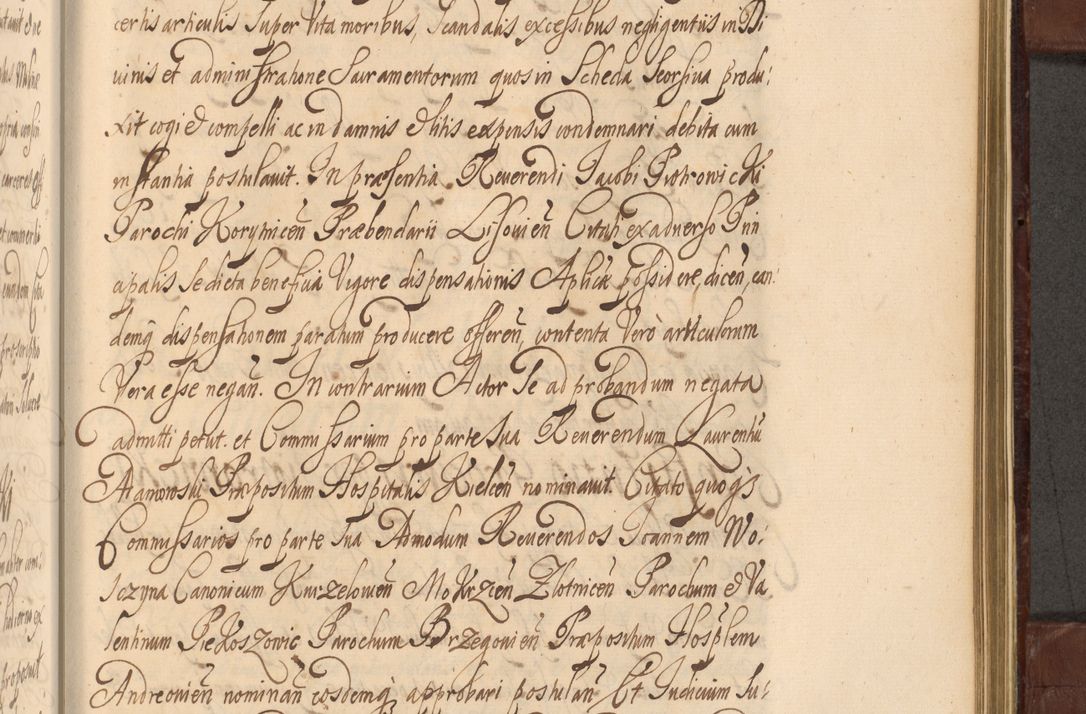 certis articulis super Vita moribus, Scandalis excessibus negligentiis in Di
uinis et administratione Sacramentorum quos in Scheda Seorsiua produ:
xit cogi & compelli ac in damnis & litis expensis condemnari debita cum
instantia postulauit. In præsentia Reuerendi Jacobi Piotrowicki
Parochi Korytnicen̄ Præbendarii Lisouien̄ Citati ex aduerso Prin
cipalis se dicta beneficia Vigore dispensationis Aplicæ possidere, dicen̄, ean
demq̃ dispensationem paratum producere offeren̄, contenta Vero articulorum
Vera esse negan̄. In contrarium Actor Se ad probandum negata
admitti petiit. et Commissarium pro parte sua Reuerendum Laurentiū
Præpositum Hospitalis Kielcen̄ nominauit. Citato quoq̃
Commissarios pro parte sua Admodum Reuerendos Joannem Wo:
lczyna Canonicum Kurzelouien̄ Mokrzcen̄ Zlotnicen̄ Parochum & Va
lentinum Piekoszowic Parochum Brzegouien̄ Præpositum Hosplem
Andreouien̄ nominan̄ eosdemq̃ approbari postulan̄ Et Judicium Su: